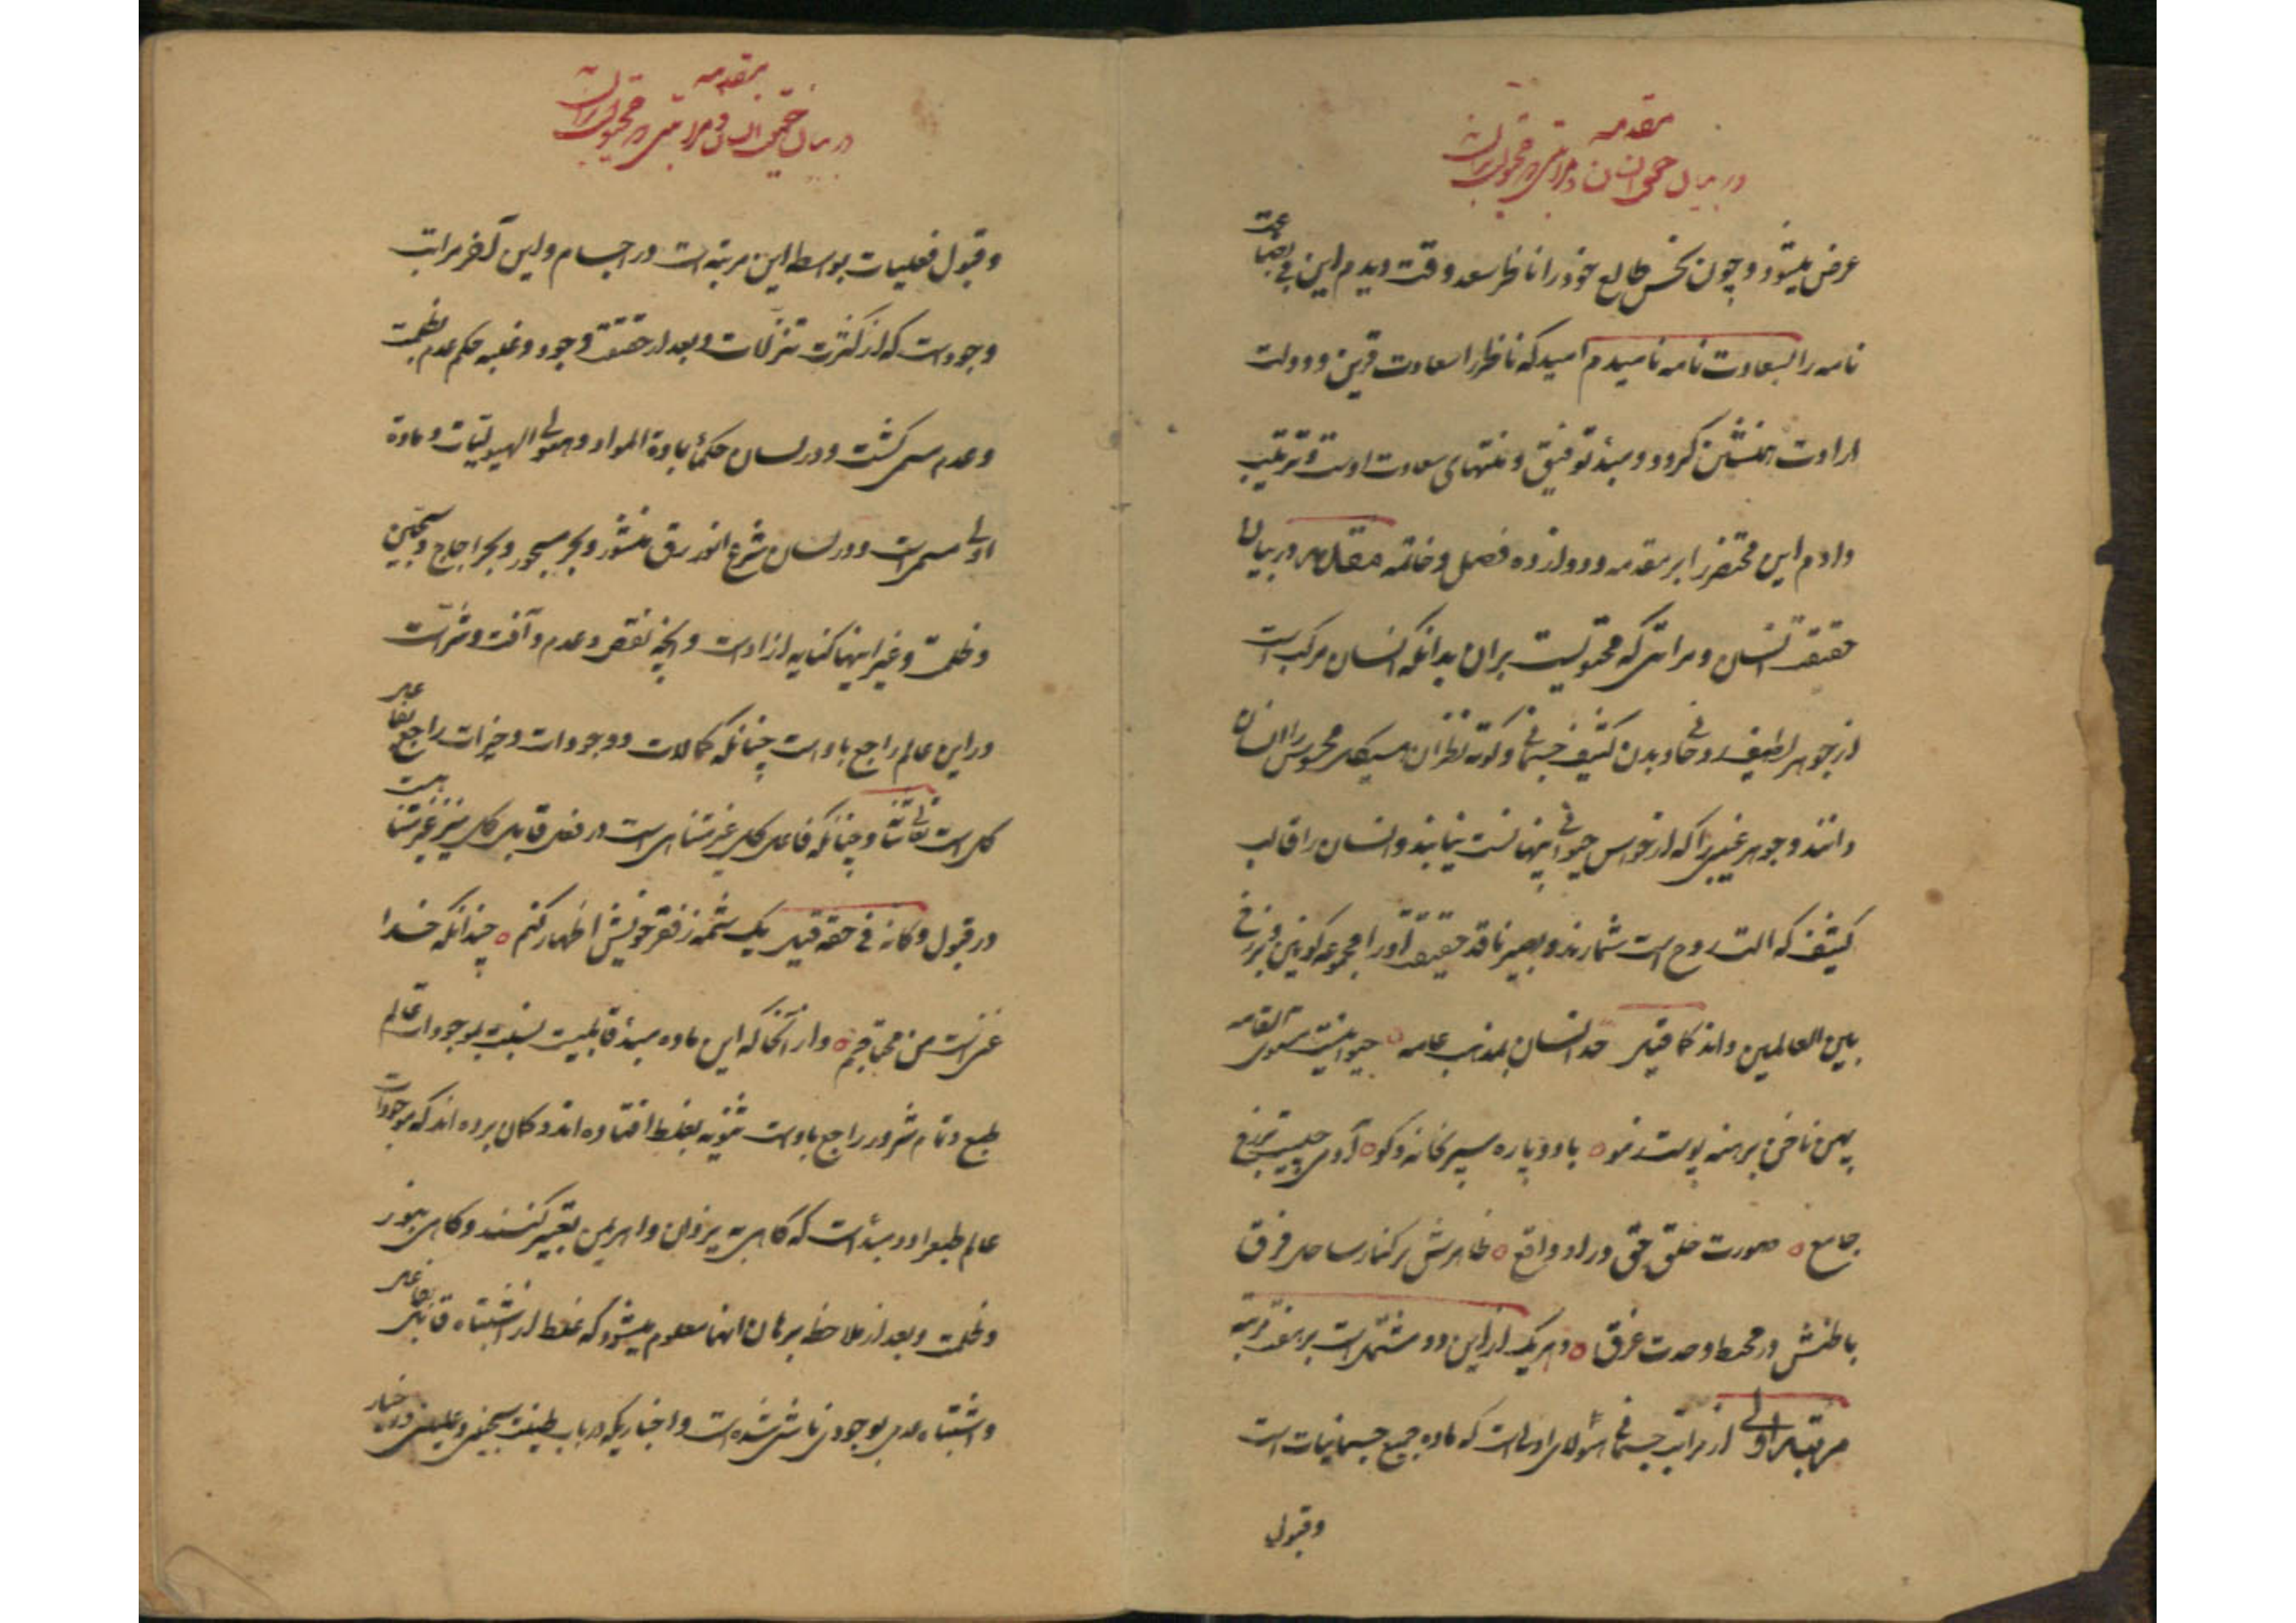 مقدمه
در بیان حقیقت انسان و مراتبی که محتویست بران
عرض میشود و چون نحس طالع خود را ناظر سعد وقت دیدم این بی بضاعت
نامه را بسعادت نامه نامیدم امید که ناظر را سعادت قرین و دولت
ارادت همنشین گردد و مبدء توفیق و منتهای سعادت اوست و ترتیب
دادم این مختصر را بر مقدمه و دوازده فصل و خاتمه مقدمه در بیان
حقیقت انسان و مراتبی که محتویست بران بدانکه انسان مرکب است
از جوهر لطیف روحانی و بدن کثیف جسمانی و کوته نظران هیکل محسوس را انسان
دانند و جوهر غیبی را که از حواس حیوانی پنهانست نیابند و انسان را قالب
کثیف که الت روح است شمارند و بصیر ناقد حقیقت او را مجموعه کونین و برزخ
بین العالمین داند کما قیل حد انسان بمذهب عامه ○ حیوانیست مستوی القامه
پهن ناخن برهنه پوست ز مو ○ با دو پا ره سپر بخانه و کو ○ آدمی چیست برزخ
جامع ○ صورت خلق و حق در او واقع ○ ظاهرش بر کنار ساحل فرق
باطنش در محیط وحدت غرق ○ و هریک از این دو مشتمل است بر هفت مرتبه
مرتبه اولی از مراتب جسمانی هیولای اولی است که ماده جمیع جسمانیات است
و قبول
مقدمه
در بیان حقیقت انسان و مراتبی که محتویست بران
و قبول فعلیات بواسطه این مرتبه است در اجسام و این آخر مراتب
وجود است که از کثرت تنزلات و بعد از حقیقت وجود و غلبه حکم عدم بظلمت
و عدم مسمی گشت و در لسان حکما بمادة المواد و هیولی الهیولیات و ماده
اولی مسمی است و در لسان شرع انور برق منشور و بحر مسجور و بحر اجاج و سجین
و ظلمت و غیر اینها کنایه از او است و آنچه نقص و عدم و آفت و شر است
در این عالم راجع باو است چنانکه کمالات و وجودات و خیرات راجع بفاعل
کل است تعالی شانه و چنانکه فاعل کل غیر متناهی است در فعل قابل کل نیز غیر متناهیست
در قبول و کانه فی حقه قیل یک شمه ز فقر خویش اظهار کنم ○ چندانکه خدا
غنی است من محتاجم ○ و از آنجا که این ماده مبدء قابلیت است نسبت بموجودات عالم
طبع و تمام شرور راجع باو است ثنویه بغلط افتاده اند و گمان برده اند که موجودات
عالم طبع را دو مبدء است که گاهی به یزدان و اهریمن تعبیر کنند و گاهی بنور
و ظلمت و بعد از ملاحظه برهان آنها معلوم میشود که غلط از اشتباه قابل بفاعل
و اشتباه عدمی بوجودی ناشی شده است و اخباریکه در باب طینت سجینی و علیینی